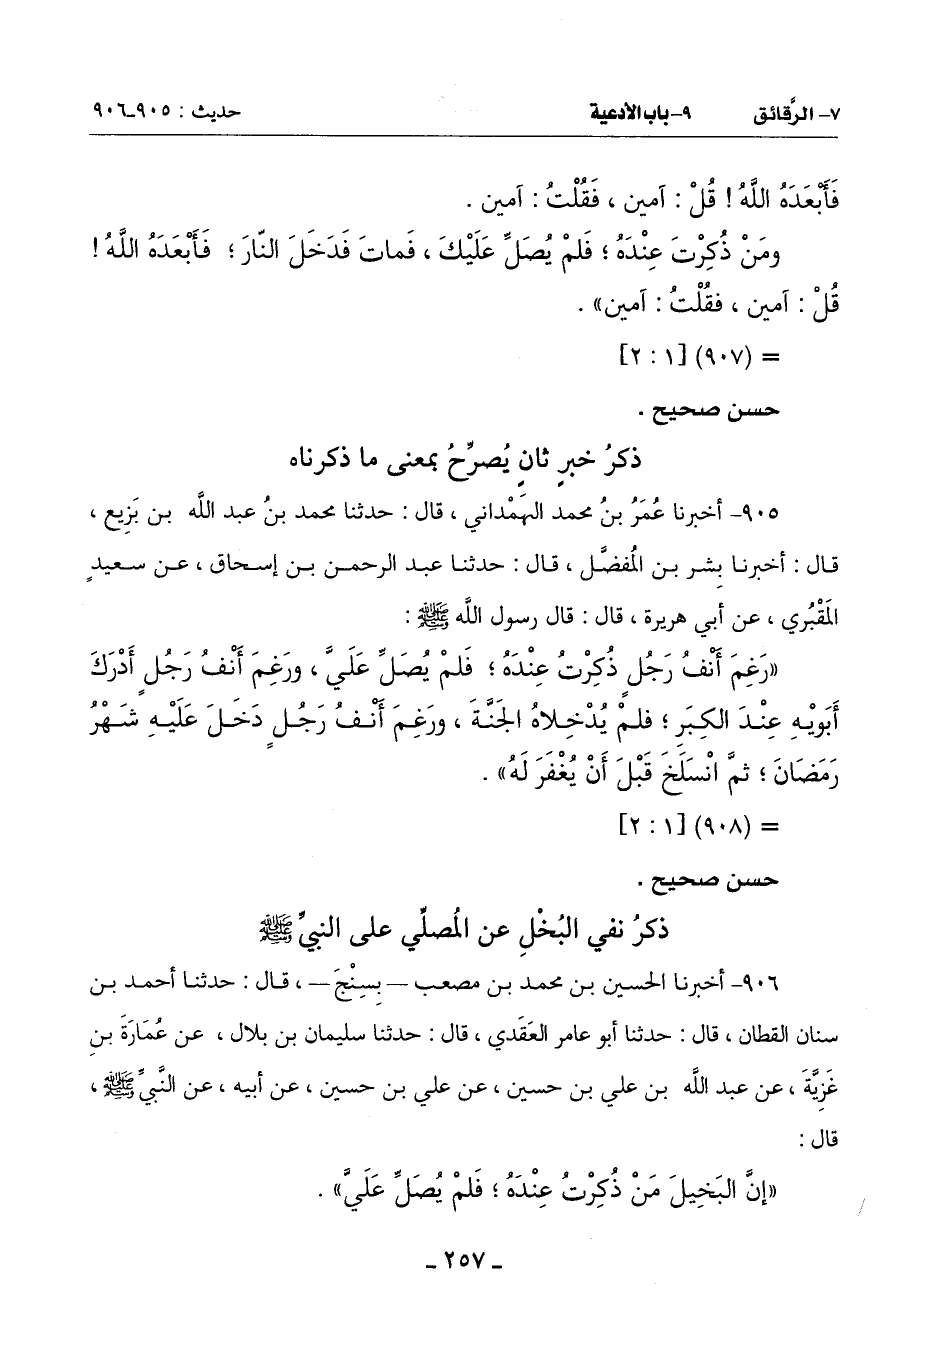 ٧- الرَّقائق ٩-باب الأدعية حديث : ٩٠٥-٩٠٦
فَأَبْعَدَهُ اللَّهُ ! قُلْ : آمين ، فَقُلْتُ : آمين .
ومَنْ ذُكِرْتَ عِنْدَهُ ؛ فَلَمْ يُصَلِّ عَلَيْكَ ، فَماتَ فَدَخَلَ النّارَ ؛ فَأَبْعَدَهُ اللَّهُ !
قُلْ : آمين ، فقُلْتُ : آمين» .
= (٩٠٧) [١ : ٢]
حسن صحيح .
ذكرُ خبرٍ ثانٍ يُصرِّحُ بمعنى ما ذكرناه
٩٠٥- أخبرنا عُمَرُ بنُ محمد الهَمْداني ، قال : حدثنا محمد بنُ عبد الله بن بَزيع ،
قال : أخبرنا بِشر بن المُفضَّل ، قال : حدثنا عبد الرحمن بن إسحاق ، عن سعيدٍ
المَقْبُري ، عن أبي هريرة ، قال : قال رسول الله ﷺ :
«رَغِمَ أَنْفُ رَجُلٍ ذُكِرْتُ عِنْدَهُ ؛ فَلَمْ يُصَلِّ عَلَيَّ ، ورَغِمَ أَنفُ رَجُلٍ أَدْرَكَ
أَبَوَيْهِ عِنْدَ الكِبَرِ ؛ فلمْ يُدْخِلاهُ الجَنَّةَ ، ورَغِمَ أَنْفُ رَجُلٍ دَخَلَ عَلَيْهِ شَهْرُ
رَمَضَانَ ؛ ثمَّ انْسَلَخَ قَبْلَ أَنْ يُغْفَرَ لَهُ» .
= (٩٠٨) [١ : ٢]
حسن صحيح .
ذكرُ نفي البُخْلِ عن المُصلِّي على النبيِّ ﷺ
٩٠٦- أخبرنا الحسين بن محمد بن مصعب – بِسِنْجَ – ، قال : حدثنا أحمد بن
سنان القطان ، قال : حدثنا أبو عامر العَقَدي ، قال : حدثنا سليمان بن بلال ، عن عُمَارَةَ بنِ
غَزِيَّةَ ، عن عبد الله بن علي بن حسين ، عن علي بن حسين ، عن أبيه ، عن النَّبيِّ ﷺ ،
قال :
«إنَّ البَخِيلَ مَنْ ذُكِرْتُ عِنْدَهُ ؛ فلَمْ يُصَلِّ عَلَيَّ» .
- ٢٥٧ -